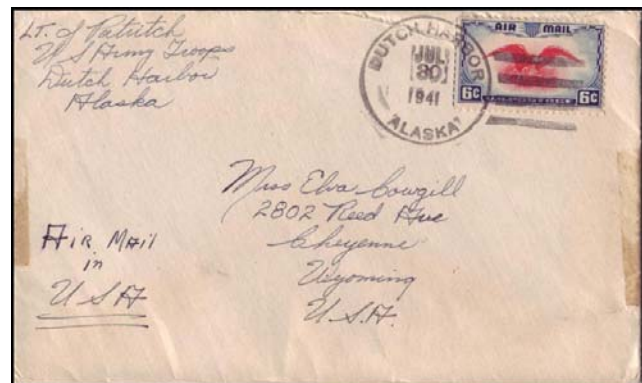 Lt. J Patritch
U S Army Troops
Dutch Harbor
Alaska
DUTCH HARBOR
JUL
30
1941
ALASKA
AIR MAIL
6c 6c
Miss Elva Cowgill
2802 Reed Ave
Cheyenne
Wyoming
U.S.A.
Air Mail
in
U S A